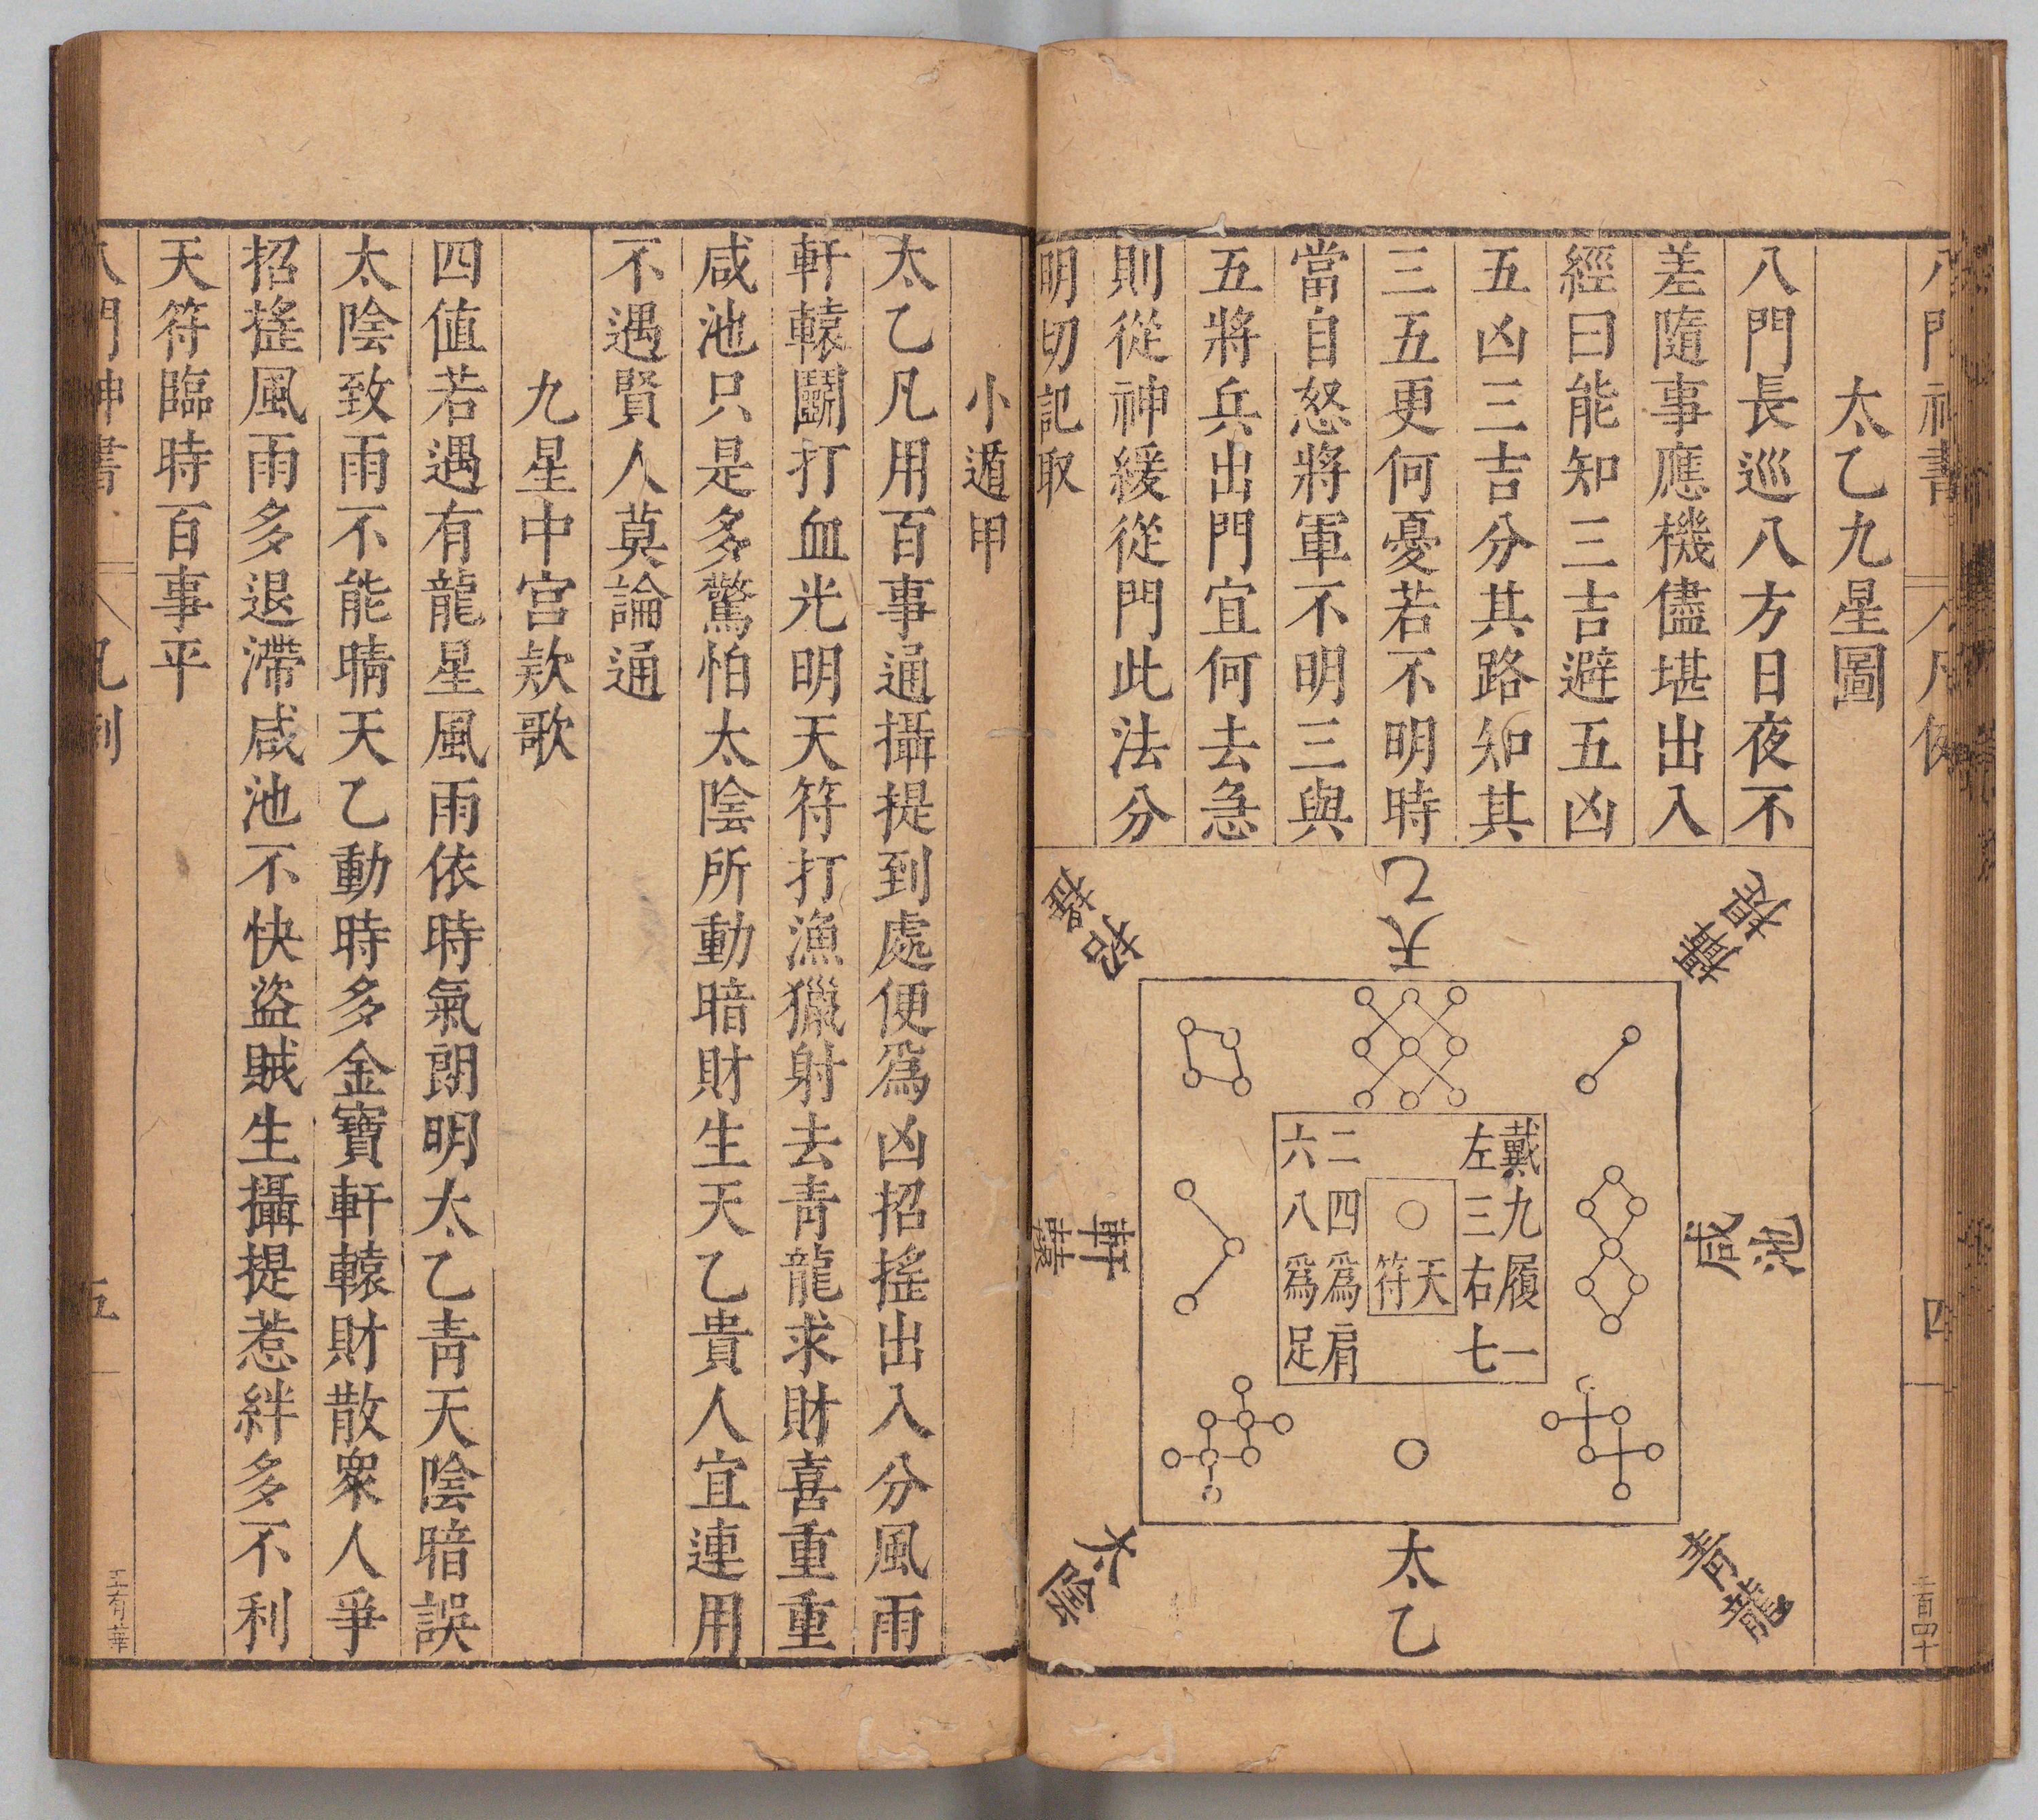 八門神書
凡例
四
二百四十
太乙九星圖
八門長巡八方日夜不
差隨事應機儘堪出入
經曰能知三吉避五凶
五凶三吉分其路知其
三五更何憂若不明時
當自怒將軍不明三與
五將兵出門宜何去急
則從神緩從門此法分
明切記取
攝提
天乙
招搖
咸池
軒轅
青龍
太乙
太陰
戴九履一
左三右七
天符
二四爲肩
六八爲足
小遁甲
太乙凡用百事通攝提到處便爲凶招搖出入分風雨
軒轅鬭打血光明天符打漁獵射去青龍求財喜重重
咸池只是多驚怕太陰所動暗財生天乙貴人宜連用
不遇賢人莫論通
九星中宮欵歌
四值若遇有龍星風雨依時氣朗明太乙青天陰暗誤
太陰致雨不能晴天乙動時多金寶軒轅財散衆人爭
招搖風雨多退滯咸池不快盜賊生攝提惹絆多不利
天符臨時百事平
八門神書
凡例
五
王有華